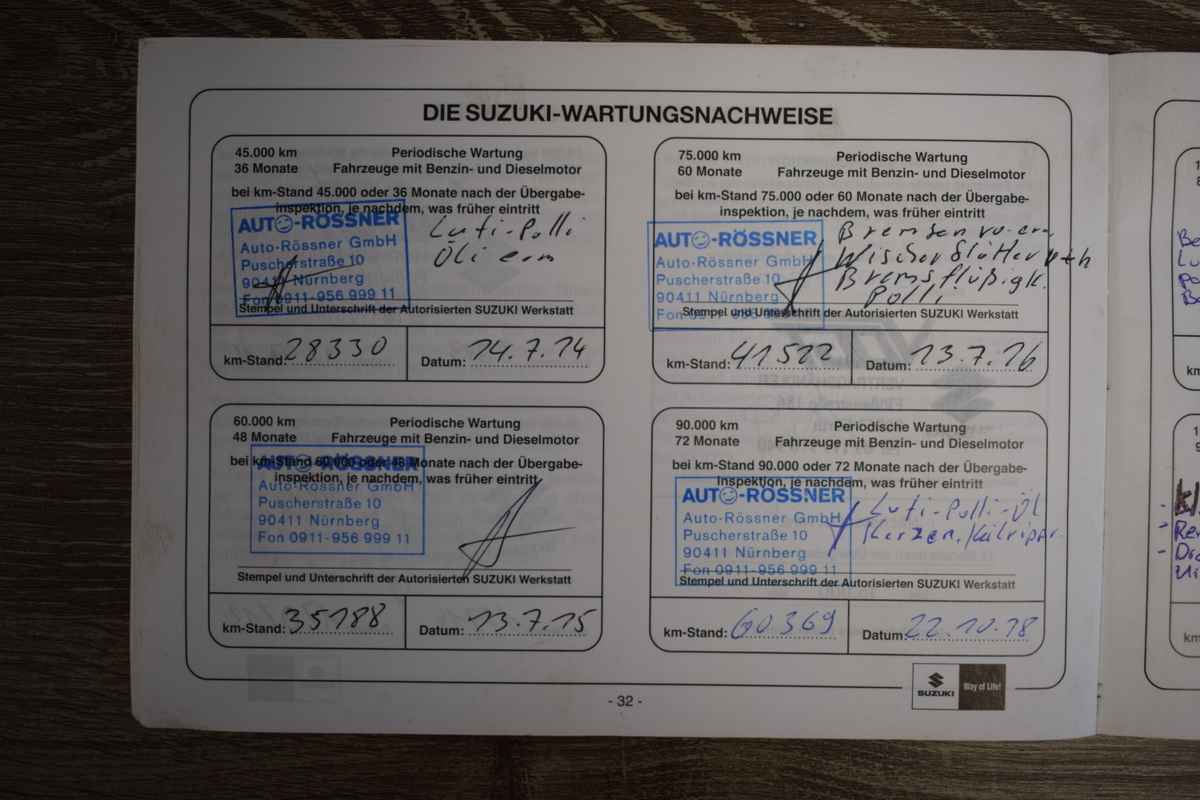 DIE SUZUKI-WARTUNGSNACHWEISE
45.000 km Periodische Wartung
36 Monate Fahrzeuge mit Benzin- und Dieselmotor
bei km-Stand 45.000 oder 36 Monate nach der Übergabe-
inspektion, je nachdem, was früher eintritt
AUTO-RÖSSNER
Auto-Rössner GmbH
Puscherstraße 10
90411 Nürnberg
Fon 0911-956 999 11
Luft-Polli
Stempel und Unterschrift der Autorisierten SUZUKI Werkstatt
km-Stand: 28330 Datum: 14.7.14
75.000 km Periodische Wartung
60 Monate Fahrzeuge mit Benzin- und Dieselmotor
bei km-Stand 75.000 oder 60 Monate nach der Übergabe-
inspektion, je nachdem, was früher eintritt
AUTO-RÖSSNER
Auto-Rössner GmbH
Puscherstraße 10
90411 Nürnberg
Fon 0911-956 999 11
Bremsen
Wischerblätter
Bremsflüßigk.
Polli
Stempel und Unterschrift der Autorisierten SUZUKI Werkstatt
km-Stand: 41522 Datum: 13.7.16
60.000 km Periodische Wartung
48 Monate Fahrzeuge mit Benzin- und Dieselmotor
bei km-Stand 60.000 oder 48 Monate nach der Übergabe-
inspektion, je nachdem, was früher eintritt
AUTO-RÖSSNER
Auto-Rössner GmbH
Puscherstraße 10
90411 Nürnberg
Fon 0911-956 999 11
Stempel und Unterschrift der Autorisierten SUZUKI Werkstatt
km-Stand: 35188 Datum: 13.7.15
90.000 km Periodische Wartung
72 Monate Fahrzeuge mit Benzin- und Dieselmotor
bei km-Stand 90.000 oder 72 Monate nach der Übergabe-
inspektion, je nachdem, was früher eintritt
AUTO-RÖSSNER
Auto-Rössner GmbH
Puscherstraße 10
90411 Nürnberg
Fon 0911-956 999 11
Luft-Polli-Öl
Kerzen,
Stempel und Unterschrift der Autorisierten SUZUKI Werkstatt
km-Stand: 60369 Datum: 22.10.18
SUZUKI Way of Life!
- 32 -